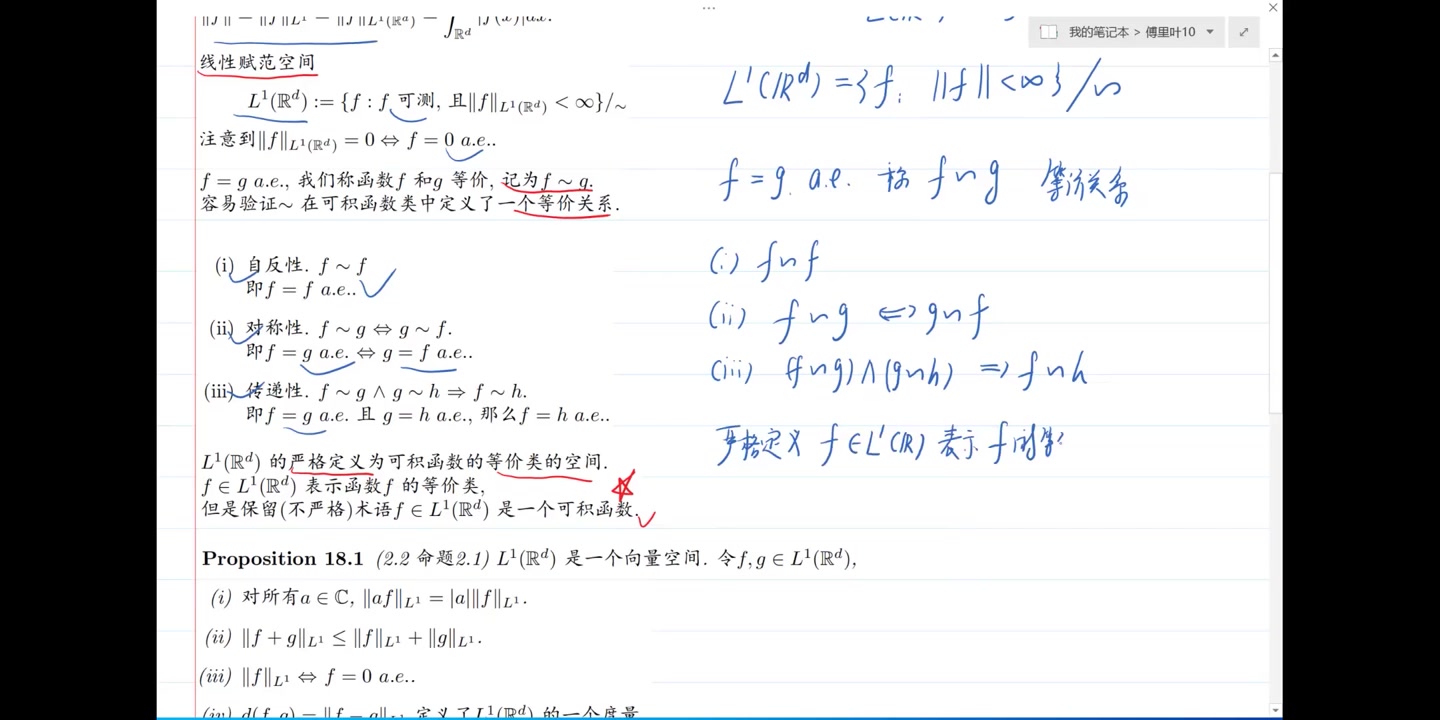 ‖f‖ = ‖f‖_{L¹} = ‖f‖_{L¹(ℝᵈ)} = ∫_{ℝᵈ} |f(x)|dx.
我的笔记本 > 傅里叶10
线性赋范空间
L¹(ℝᵈ) := {f : f 可测, 且‖f‖_{L¹(ℝᵈ)} < ∞}/∼
注意到‖f‖_{L¹(ℝᵈ)} = 0 ⇔ f = 0 a.e..
f = g a.e., 我们称函数f 和g 等价, 记为f ∼ g.
容易验证∼ 在可积函数类中定义了一个等价关系.
(i) 自反性. f ∼ f
即f = f a.e..
(ii) 对称性. f ∼ g ⇔ g ∼ f.
即f = g a.e. ⇔ g = f a.e..
(iii) 传递性. f ∼ g ∧ g ∼ h ⇒ f ∼ h.
即f = g a.e. 且 g = h a.e., 那么f = h a.e..
L¹(ℝᵈ) 的严格定义为可积函数的等价类的空间.
f ∈ L¹(ℝᵈ) 表示函数f 的等价类,
但是保留(不严格)术语f ∈ L¹(ℝᵈ) 是一个可积函数.
Proposition 18.1 (2.2 命题2.1) L¹(ℝᵈ) 是一个向量空间. 令f, g ∈ L¹(ℝᵈ),
(i) 对所有a ∈ ℂ, ‖af‖_{L¹} = |a|‖f‖_{L¹}.
(ii) ‖f + g‖_{L¹} ≤ ‖f‖_{L¹} + ‖g‖_{L¹}.
(iii) ‖f‖_{L¹} ⇔ f = 0 a.e..
(iv) d(f, g) = ‖f − g‖_{L¹} 定义了L¹(ℝᵈ) 的一个度量
L¹(ℝᵈ) = {f: ‖f‖ < ∞}/∼
f = g. a.e. 称 f ∼ g 等价关系
(i) f ∼ f
(ii) f ∼ g ⇔ g ∼ f
(iii) (f ∼ g) ∧ (g ∼ h) ⇒ f ∼ h
严格定义 f ∈ L¹(ℝ) 表示 f 的等